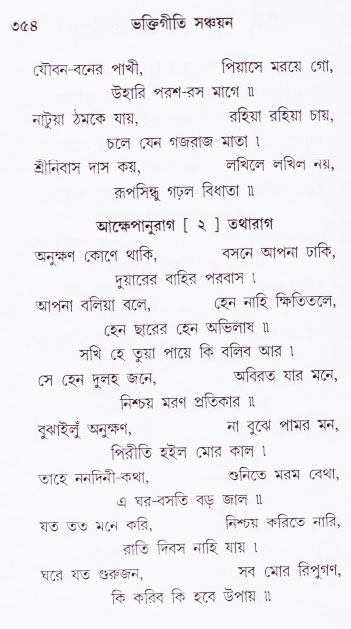 ৩৫৪ ভক্তিগীতি সঞ্চয়ন
যৌবন-বনের পাখী, পিয়াসে মরয়ে গো,
উহারি পরশ-রস মাগে ॥
নাটুয়া ঠমকে যায়, রহিয়া রহিয়া চায়,
চলে যেন গজরাজ মাতা।
শ্রীনিবাস দাস কয়, লখিলে লখিল নয়,
রূপসিন্ধু গঢ়ল বিধাতা ॥
আক্ষেপানুরাগ [ ২ ] তথারাগ
অনুক্ষণ কোণে থাকি, বসনে আপনা ঢাকি,
দুয়ারের বাহির পরবাস।
আপনা বলিয়া বলে, হেন নাহি ক্ষিতিতলে,
হেন ছারের হেন অভিলাষ ॥
সখি হে তুয়া পায়ে কি বলিব আর।
সে হেন দুলহ জনে, অবিরত যার মনে,
নিশ্চয় মরণ প্রতিকার ॥
বুঝাইলুঁ অনুক্ষণ, না বুঝে পামর মন,
পিরীতি হইল মোর কাল।
তাহে ননদিনী-কথা, শুনিতে মরম বেথা,
এ ঘর-বসতি বড় জাল ॥
যত তত মনে করি, নিশ্চয় করিতে নারি,
রাতি দিবস নাহি যায়।
ঘরে যত গুরুজন, সব মোর রিপুগণ,
কি করিব কি হবে উপায় ॥